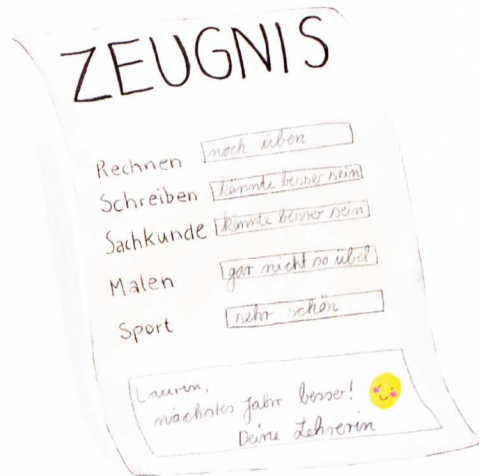 ZEUGNIS
Rechnen noch üben
Schreiben könnte besser sein
Sachkunde könnte besser sein
Malen gar nicht so übel
Sport sehr schön
Lauren,
nächstes Jahr besser!
Deine Lehrerin